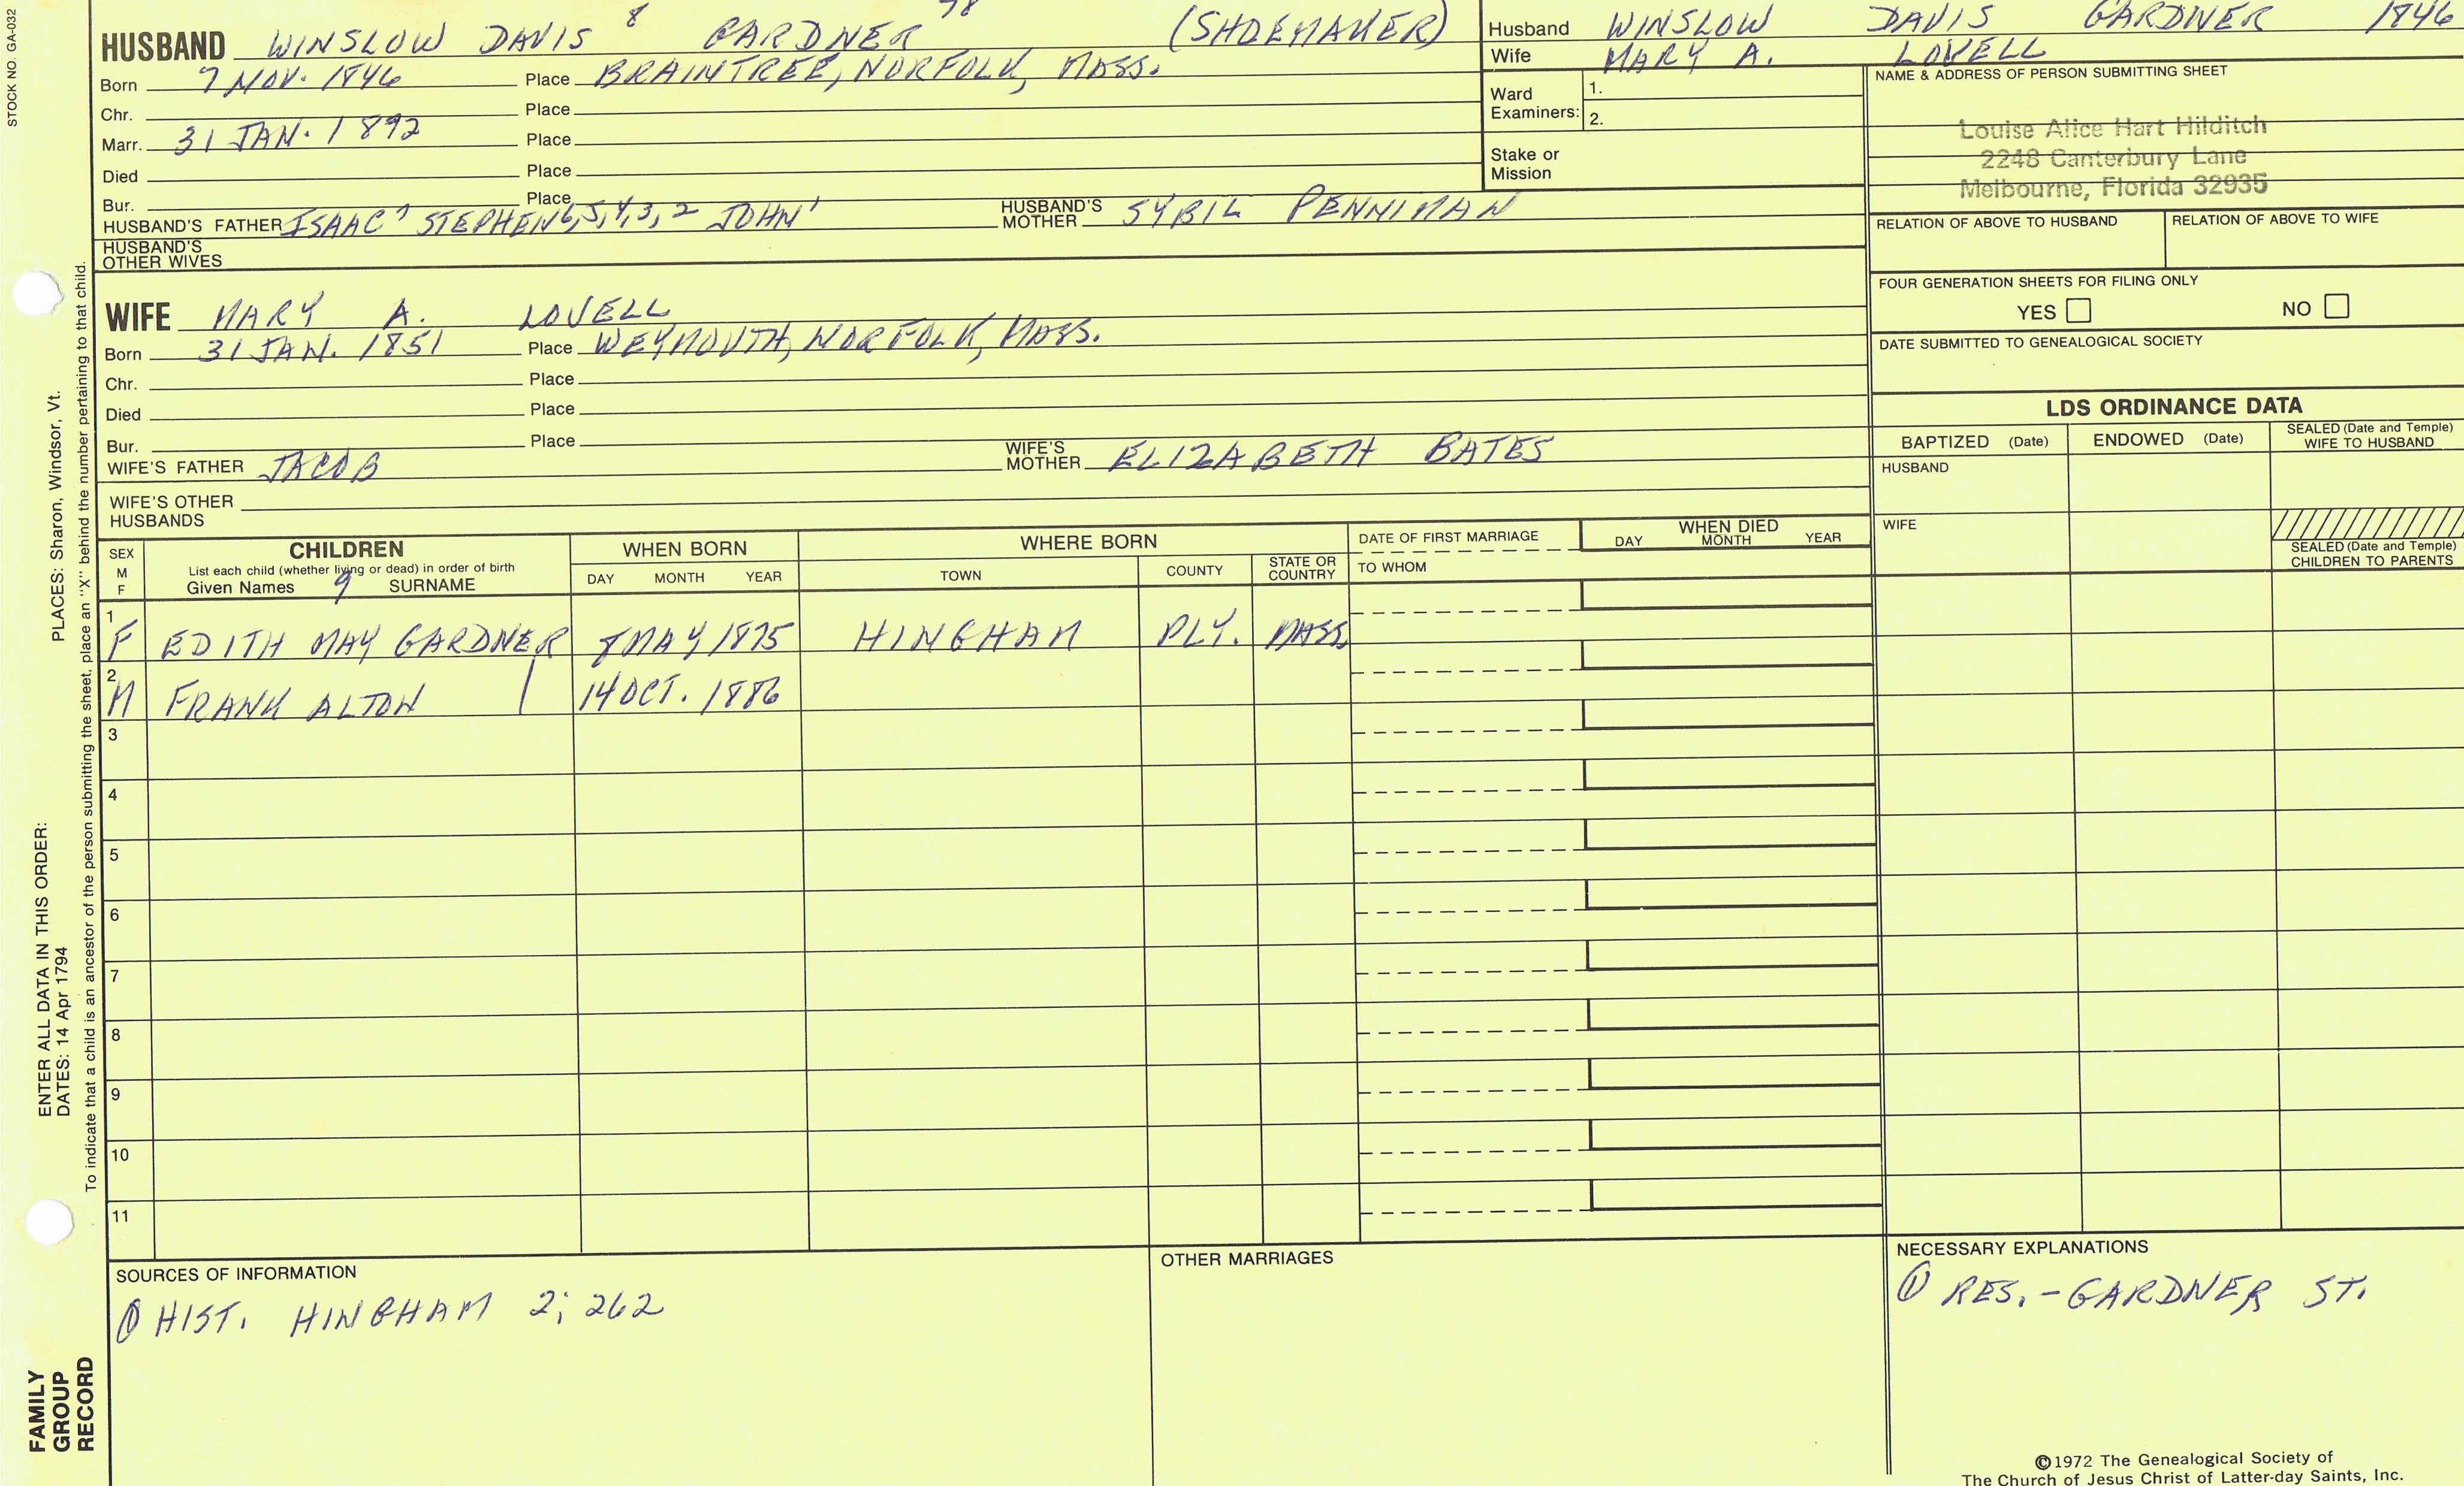 STOCK NO. GA-032
HUSBAND WINSLOW DAVIS 8 GARDNER 78 (SHOEMAKER)
Born 7 NOV. 1846 Place BRAINTREE, NORFOLK, MASS.
Chr. Place
Marr. 31 JAN. 1892 Place
Died Place
Bur. Place
HUSBAND'S FATHER ISAAC 7 STEPHEN 6, 5, 4, 3, 2 JOHN 1 HUSBAND'S MOTHER SYBIL PENNIMAN
HUSBAND'S OTHER WIVES
Husband WINSLOW DAVIS GARDNER 1846
Wife MARY A. LOVELL
Ward Examiners: 1.
2.
Stake or Mission
NAME & ADDRESS OF PERSON SUBMITTING SHEET
Louise Alice Hart Hilditch
2248 Canterbury Lane
Melbourne, Florida 32935
RELATION OF ABOVE TO HUSBAND RELATION OF ABOVE TO WIFE
FOUR GENERATION SHEETS FOR FILING ONLY
YES NO
DATE SUBMITTED TO GENEALOGICAL SOCIETY
WIFE MARY A. LOVELL
Born 31 JAN. 1851 Place WEYMOUTH, NORFOLK, MASS.
Chr. Place
Died Place
Bur. Place
WIFE'S FATHER JACOB WIFE'S MOTHER ELIZABETH BATES
WIFE'S OTHER HUSBANDS
LDS ORDINANCE DATA
BAPTIZED (Date) ENDOWED (Date) SEALED (Date and Temple) WIFE TO HUSBAND
HUSBAND
WIFE
SEALED (Date and Temple) CHILDREN TO PARENTS
SEX M F CHILDREN WHEN BORN WHERE BORN DATE OF FIRST MARRIAGE WHEN DIED
List each child (whether living or dead) in order of birth
Given Names 9 SURNAME DAY MONTH YEAR TOWN COUNTY STATE OR COUNTRY TO WHOM DAY MONTH YEAR
1 F EDITH MAY GARDNER 8 MAY 1875 HINGHAM PLY. MASS.
2 M FRANK ALTON 14 OCT. 1886
3
4
5
6
7
8
9
10
11
SOURCES OF INFORMATION
① HIST. HINGHAM 2; 262
OTHER MARRIAGES
NECESSARY EXPLANATIONS
① RES. - GARDNER ST.
©1972 The Genealogical Society of
The Church of Jesus Christ of Latter-day Saints, Inc.
FAMILY GROUP RECORD
ENTER ALL DATA IN THIS ORDER:
DATES: 14 Apr 1794 PLACES: Sharon, Windsor, Vt.
To indicate that a child is an ancestor of the person submitting the sheet, place an "X" behind the number pertaining to that child.